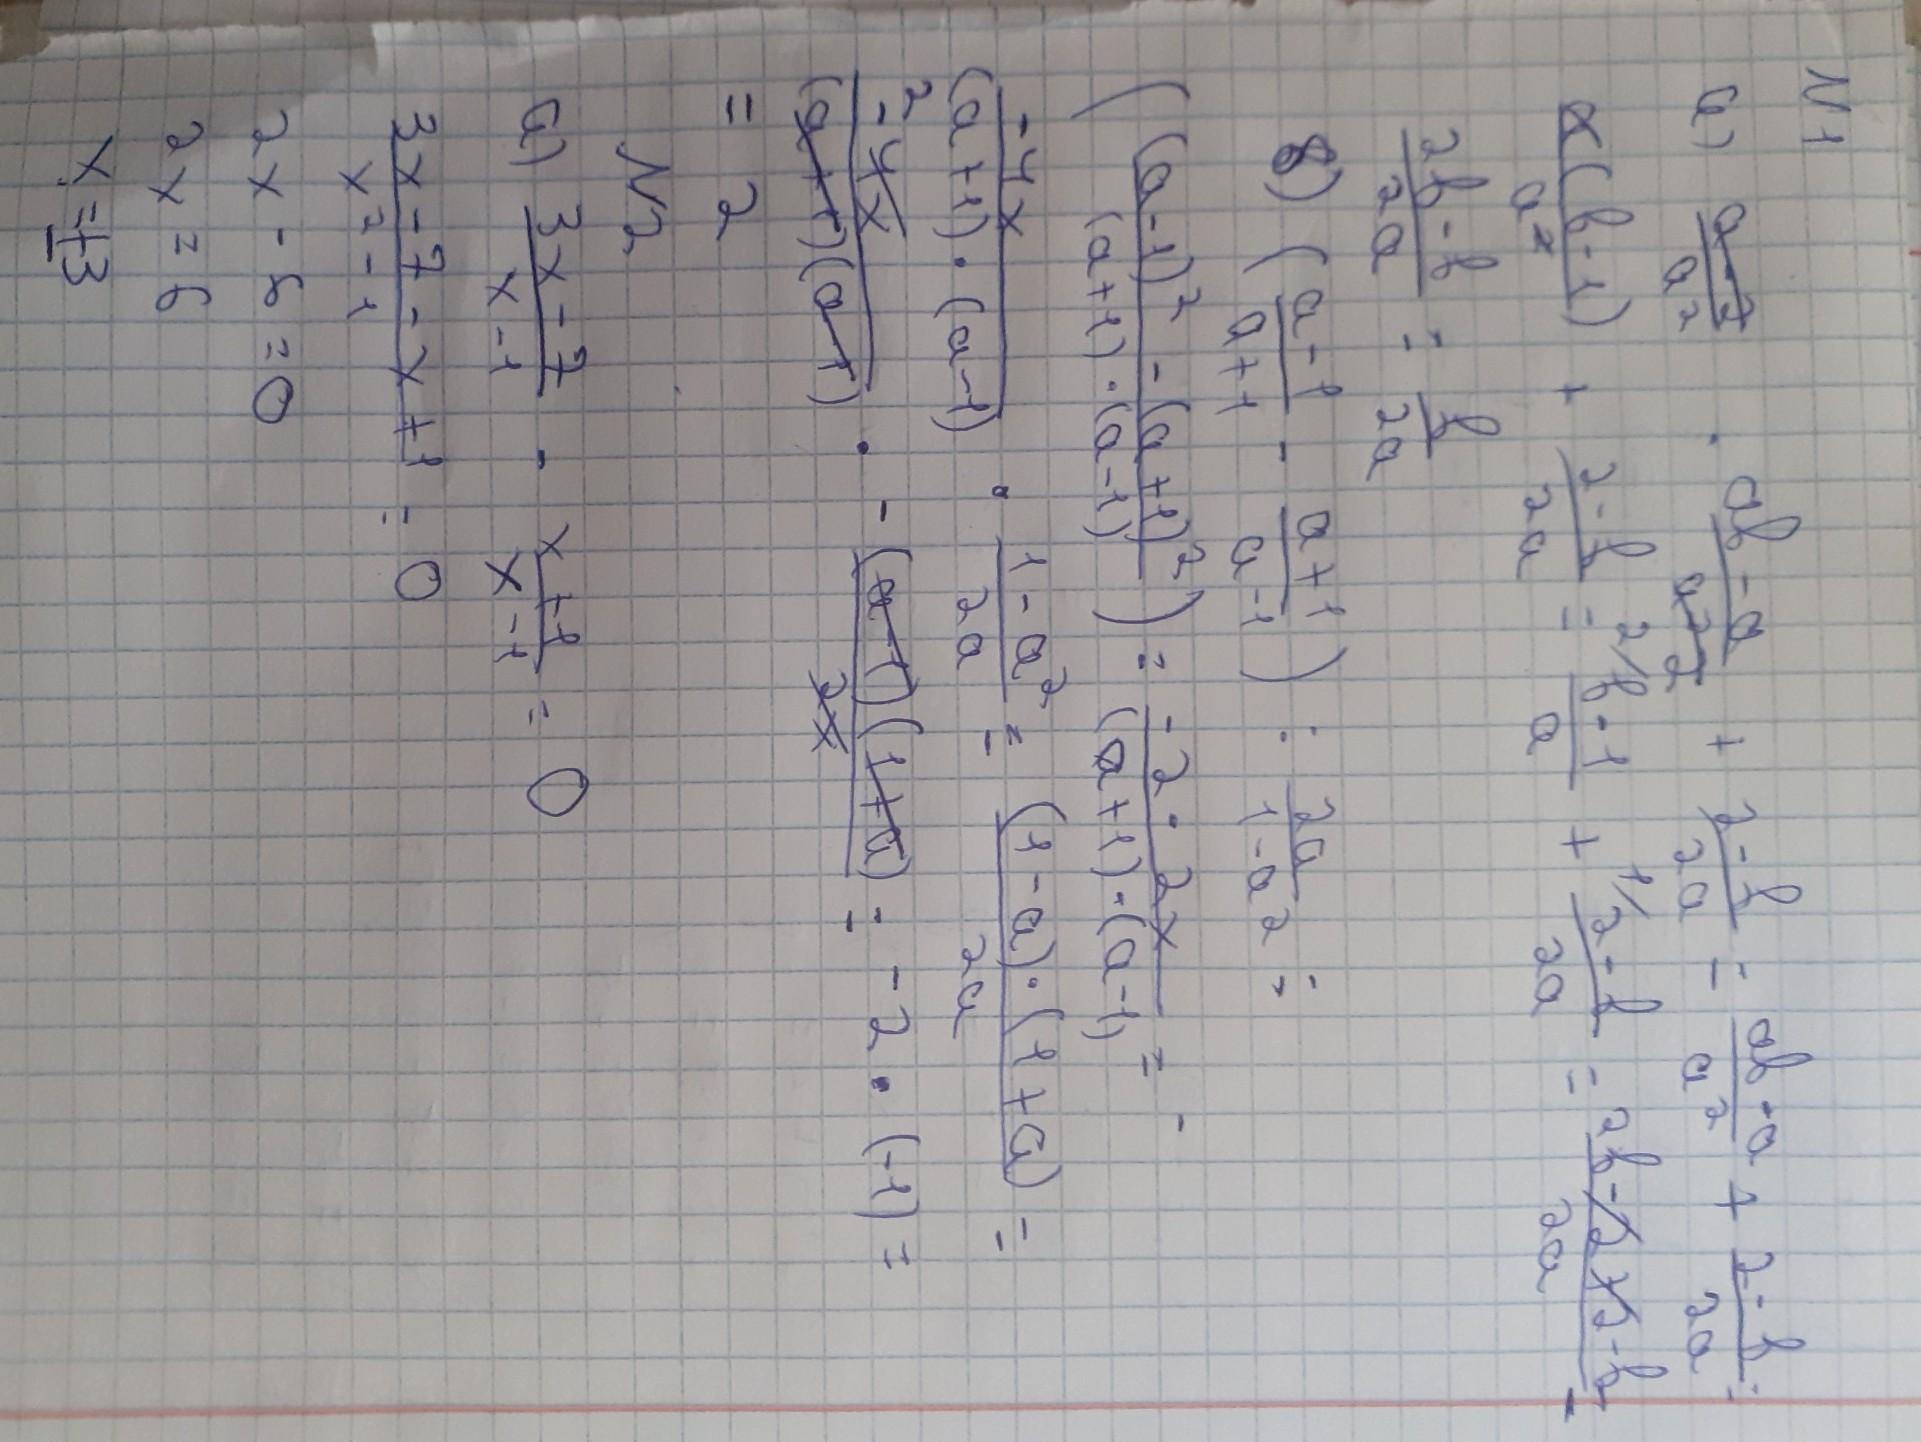 N1
a) (a-2)/a² · (ab-a)/(a-2) + (2-b)/2a = (ab-a)/a² + (2-b)/2a =
a(b-1)/a² + (2-b)/2a = 2/ (b-1)/a + 1/ (2-b)/2a = (2b-2+2-b)/2a =
(2b-b)/2a = b/2a
б) ((a-1)/(a+1) - (a+1)/(a-1)) : 2a/(1-a²) =
(((a-1)² - (a+1)²)/((a+1)·(a-1))) = (-2·2x)/((a+1)·(a-1)) = -
-4x/((a+1)·(a-1)) · (1-a²)/2a = ((1-a)·(1+a))/2a =
2 -4x/((a+1)(a-1)) · -((a-1)(1+a))/2x = -2·(-1) =
= 2
N2
a) (3x-7)/(x-1) - (x+1)/(x-1) = 0
(3x-7-x+1)/(x²-1) = 0
2x-6=0
2x=6
x=±3